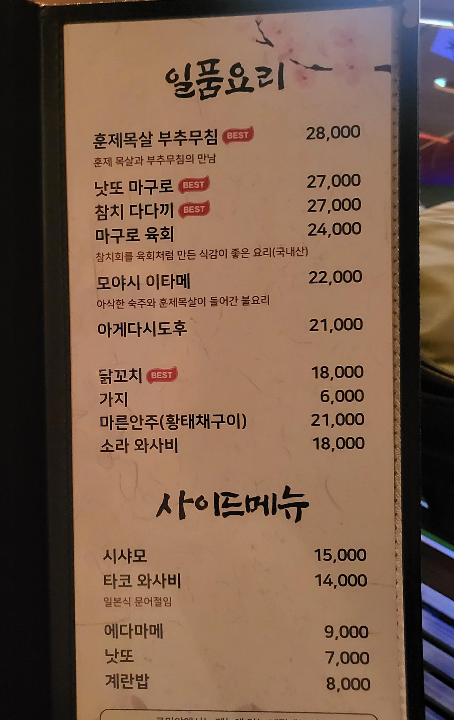 일품요리
훈제목살 부추무침 BEST 28,000
훈제 목살과 부추무침의 만남
낫또 마구로 BEST 27,000
참치 다다끼 BEST 27,000
마구로 육회 24,000
참치회를 육회처럼 만든 식감이 좋은 요리(국내산)
모야시 이타메 22,000
아삭한 숙주와 훈제목살이 들어간 볼요리
아게다시도후 21,000
닭꼬치 BEST 18,000
가지 6,000
마른안주(황태채구이) 21,000
소라 와사비 18,000
사이드메뉴
시샤모 15,000
타코 와사비 14,000
일본식 문어절임
에다마메 9,000
낫또 7,000
계란밥 8,000